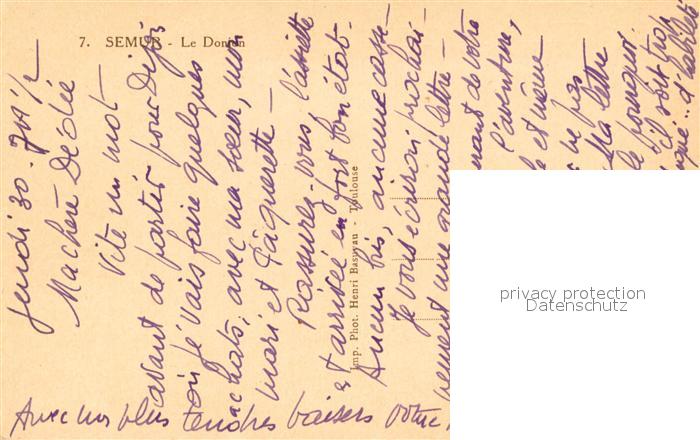 7. SEMUR - Le Donjon
Jeudi 30. 7h 1/2
Ma chère Dédée
Vite un mot
avant de partir pour Dijon
où je vais faire quelques
achats, avec ma sœur, mon
mari et Pâquerette -
Rassurez-vous, l'assiette
est arrivée en fort bon état.
Aucun bris, aucune casse -
Je vous écrirai prochai-
nement une grande lettre -
nant de votre
l'aventure,
et même
ne pas
Ma lettre
le pourquoi
il soit trop
d'habileté
Avec nos plus tendres baisers votre
Imp. Phot. Henri Basuyau - Toulouse
privacy protection
Datenschutz